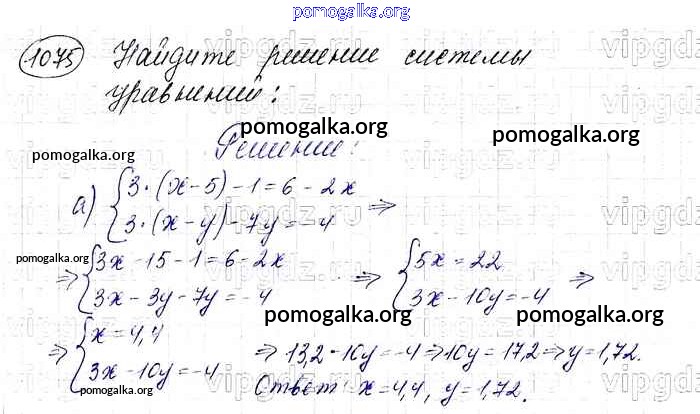 pomogalka.org
1075 Найдите решение системы
уравнений:
pomogalka.org
pomogalka.org
Решение:
pomogalka.org
а) {3·(x-5)-1=6-2x
3·(x-y)-7y=-4 ⇒
pomogalka.org
⇒ {3x-15-1=6-2x
3x-3y-7y=-4 ⇒ {5x=22
3x-10y=-4 ⇒
pomogalka.org
pomogalka.org
⇒ {x=4,4
3x-10y=-4 ⇒ 13,2-10y=-4 ⇒ 10y=17,2 ⇒ y=1,72.
pomogalka.org
Ответ: x=4,4, y=1,72.
vipgdz.ru